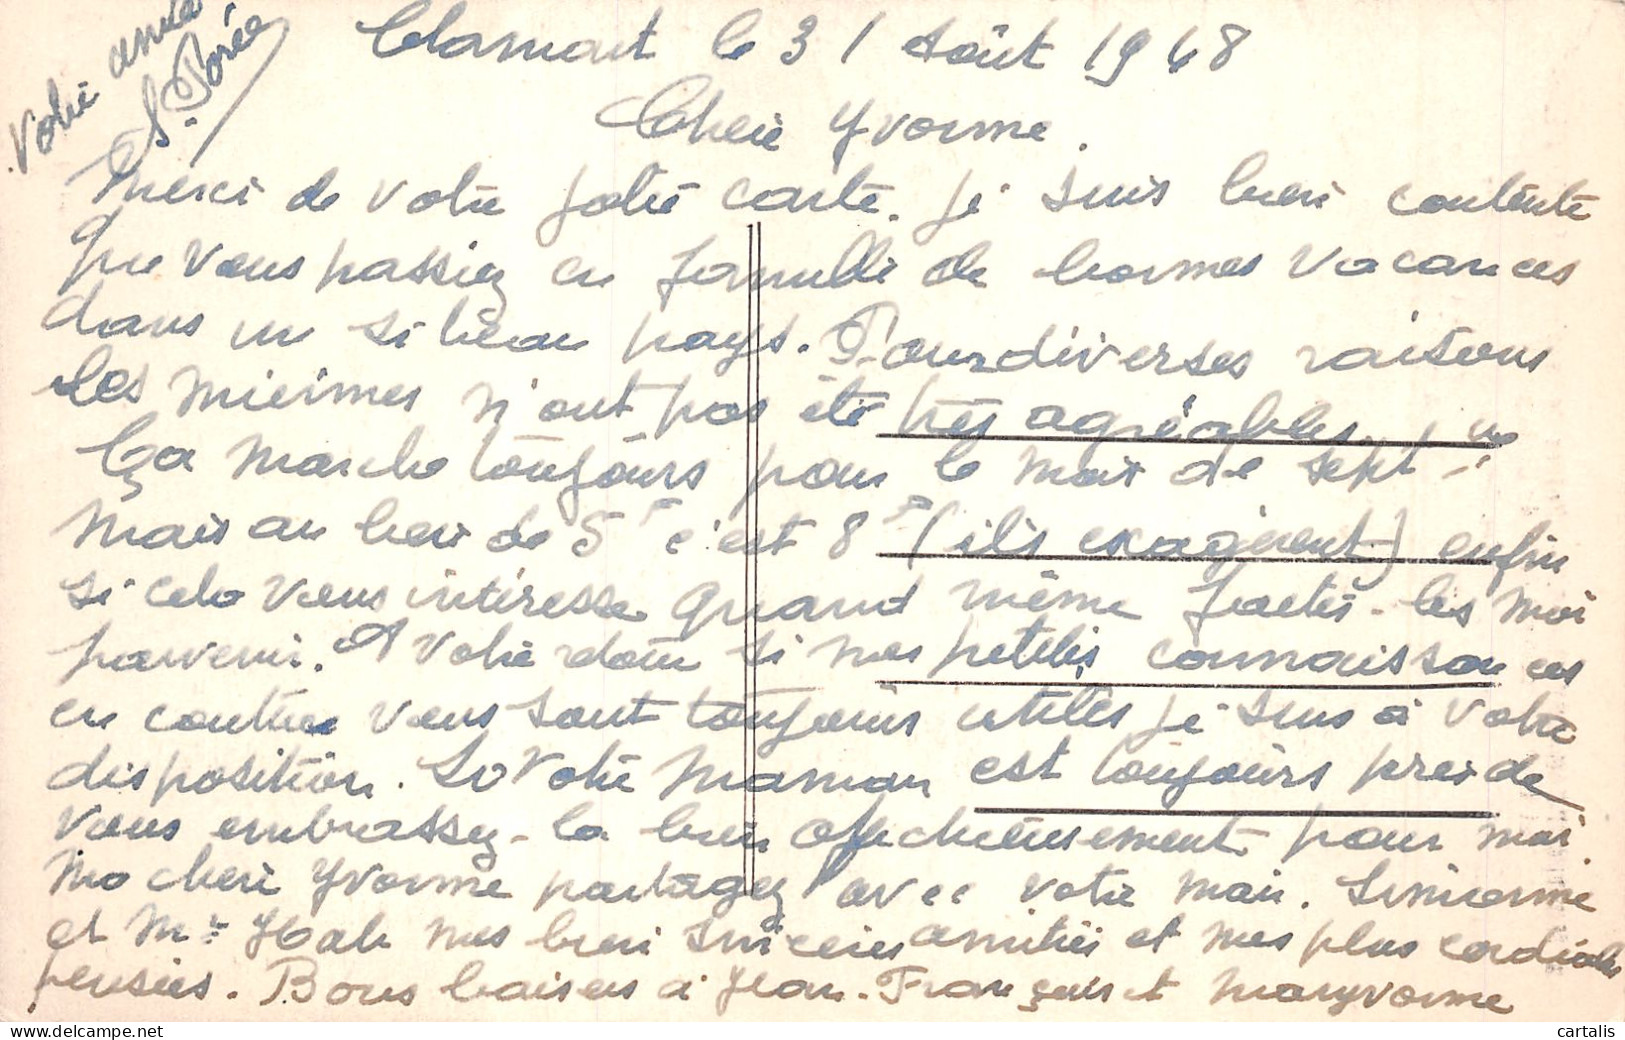 Votre amie
S. Porée
Clamart le 31 Août 1948
Chère Yvonne.
Merci de votre jolie carte. je suis bien contente
que vous passiez en famille de bonnes vacances
dans un si beau pays. Pour diverses raisons
les miennes n'ont pas été très agréables.
Ça marche toujours pour le mois de sept
mais au lieu de 5 c'est 8 (ils exagèrent) enfin
si cela vous intéresse quand même faites-les moi
parvenir. A votre retour si mes petites connaissances
en couture vous sont toujours utiles je suis à votre
disposition. Si votre maman est toujours près de
vous embrassez-la bien affectueusement pour moi.
Ma chère Yvonne partagez avec votre mari.
et Mr mes bien sincères amitiés et mes plus cordiales
pensées. Bons baisers à Jean-François et Maryvonne
cartalis